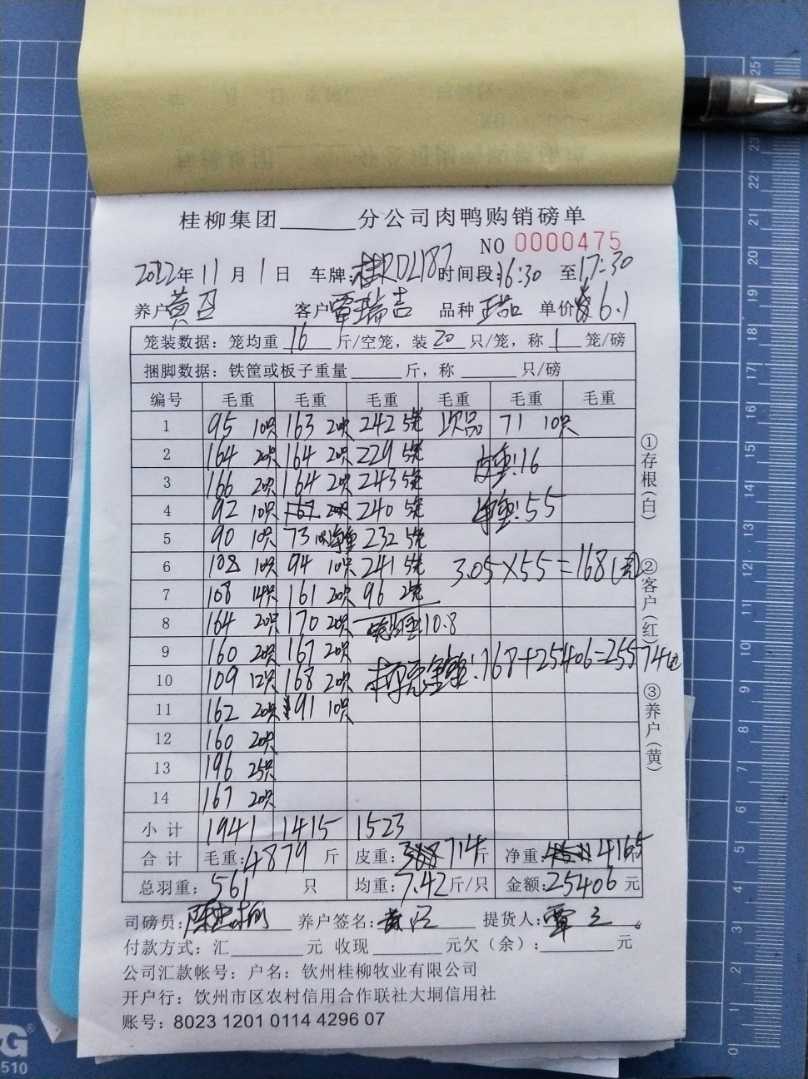 桂柳集团______分公司肉鸭购销磅单
NO 0000475
2022年11月1日 车牌:桂RD2187 时间段:16:30 至17:30
养户 黄 客户 覃瑞吉 品种 单价 6.1
笼装数据：笼均重 16 斤/空笼，装 20 只/笼，称 1 笼/磅
捆脚数据：铁筐或板子重量______斤，称______只/磅
编号 毛重 毛重 毛重 毛重 毛重 毛重
1 95 10只 163 20只 242 5笼 次品 71 10只
2 164 20只 164 20只 229 5笼 皮重:16
3 166 20只 164 20只 243 5笼
4 92 10只 167 20只 240 5笼 净重:55
5 90 10只 73 232 5笼
6 108 10只 94 10只 241 5笼 3.05×55=168(元)
7 108 14只 161 20只 96 2笼
8 164 20只 170 20只 10.8
9 160 20只 167 20只
10 109 12只 168 20只 168+25406=25574元
11 162 20只 191 10只
12 160 20只
13 196 25只
14 167 20只
小计 1941 1415 1523
合计 毛重:4879 斤 皮重: 714斤 净重: 4165
总羽重: 561 只 均重: 7.42斤/只 金额:25406 元
司磅员: 养户签名: 黄 提货人: 覃
付款方式：汇______元 收现______元欠（余）：______元
公司汇款帐号：户名：钦州桂柳牧业有限公司
开户行：饮州市区农村信用合作联社大垌信用社
账号：8023 1201 0114 4296 07
①存根(白) ②客户(红) ③养户(黄)
25
24
23
22
21
20
19
18
17
16
15
14
13
12
11
10
9
8
7
6
5
4
3
2
1
0
G
510